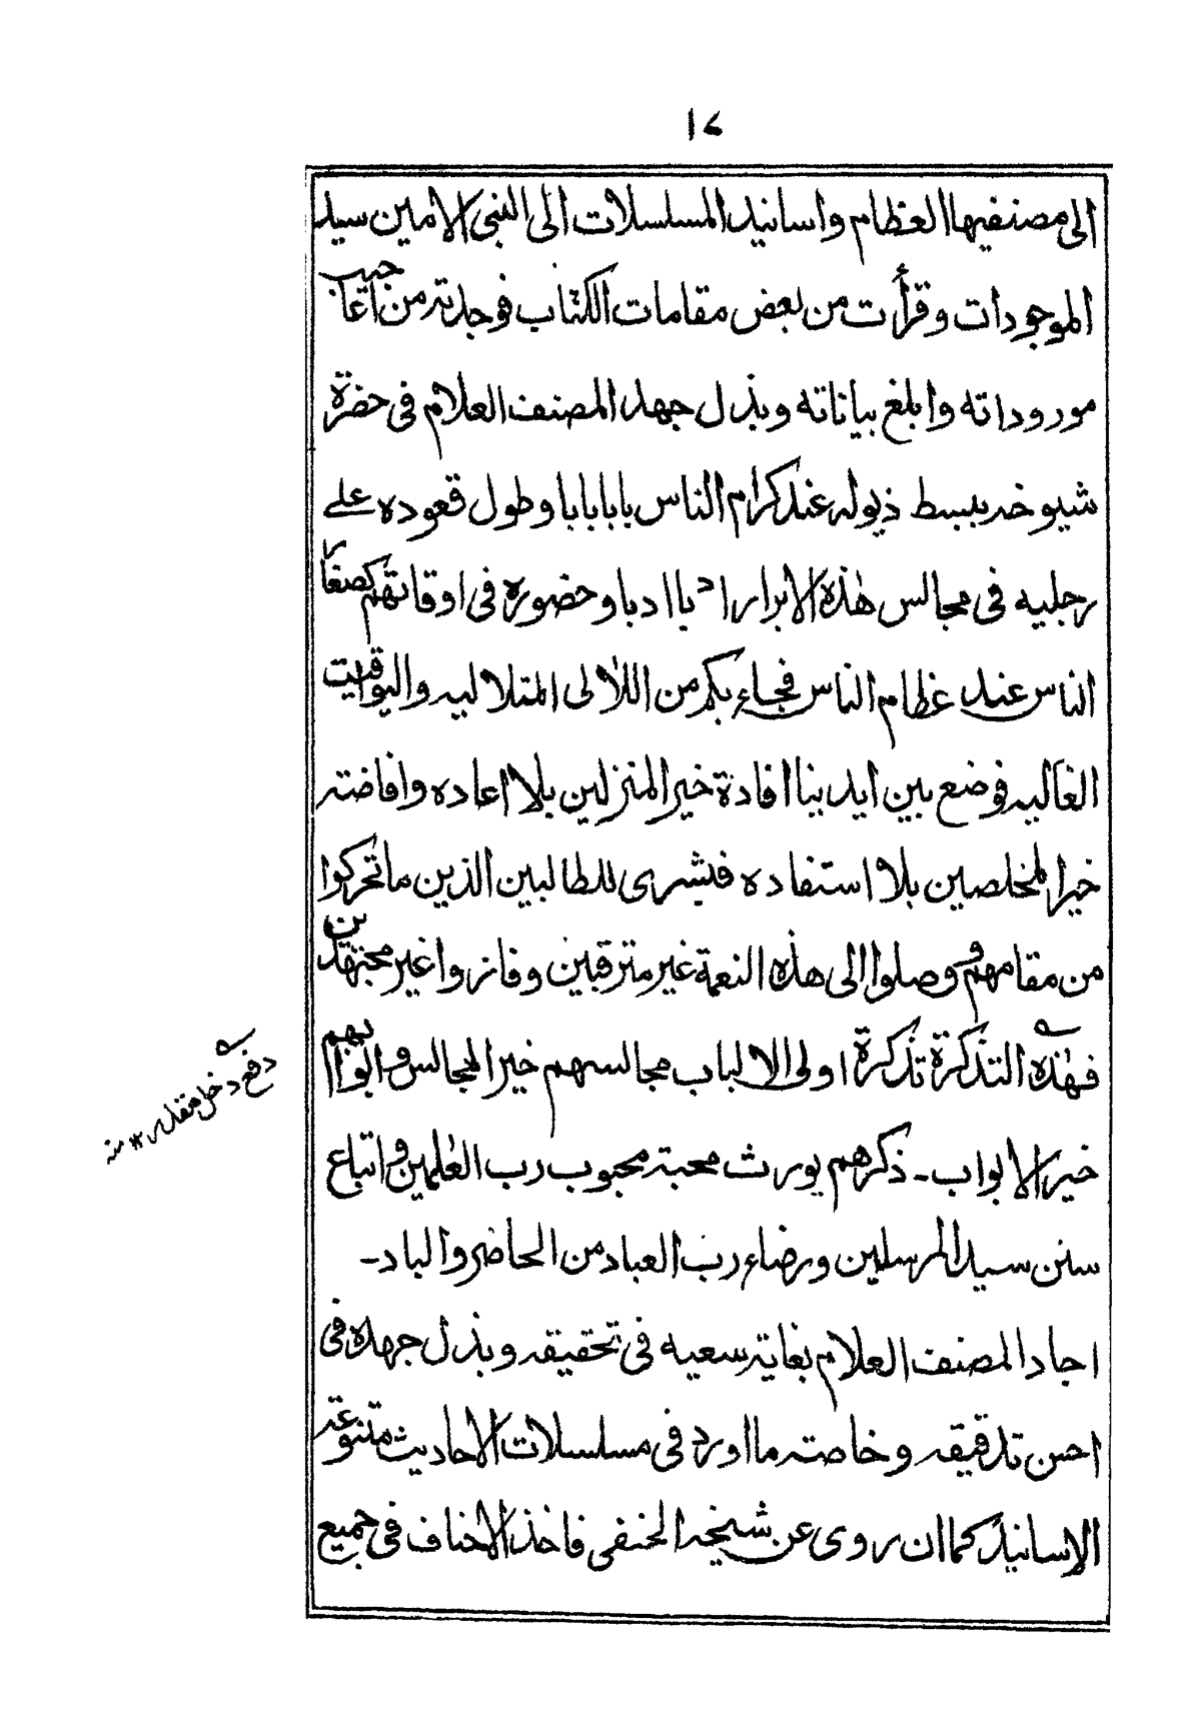 ١٧
الى مصنفيها العظام واسانيد المسلسلات الى النبى الامين سيد
الموجودات وقرأت من بعض مقامات الكتاب فوجدته من اعاجيب
موروداته وابلغ بياناته وبذل جهد المصنف العلام فى حضرة
شيوخه ببسط ذيوله عند كرام الناس بابا بابا وطول قعوده على
رجليه فى مجالس هٰذه الابرار ادبا ادبا وحضوره فى اوقاتهم كصغار
الناس عند عظام الناس فجاء بكم من اللآلى المتلاليه واليواقيت
الغاليه فوضع بين ايدينا افادة خير المنزلين بلا اعاده وافاضته
خير المخلصين بلا استفاده فبشرى للطالبين الذين ما تحركوا
من مقامهم ووصلوا الى هذه النعمة غير مترقبين وفازوا غير مجتهدين
فهٰذه التذكرة تذكرة اولى الالباب مجالسهم خير المجالس وابوابهم
خير الابواب۔ ذكرهم يورث محبة محبوب رب العٰلمين واتباع
سنن سيد المرسلين ورضاء رب العباد من الحاضر والباد۔
اجاد المصنف العلام بغاية سعيه فى تحقيقه وبذل جهده فى
احسن تدقيقه وخاصته ما اورد فى مسلسلات الاحاديث متنوعة
الاسانيد كما ان روى عن شيخه الحنفى فاخذ الاحناف فى جميع
دفع دخل مقدر ١٢ منه